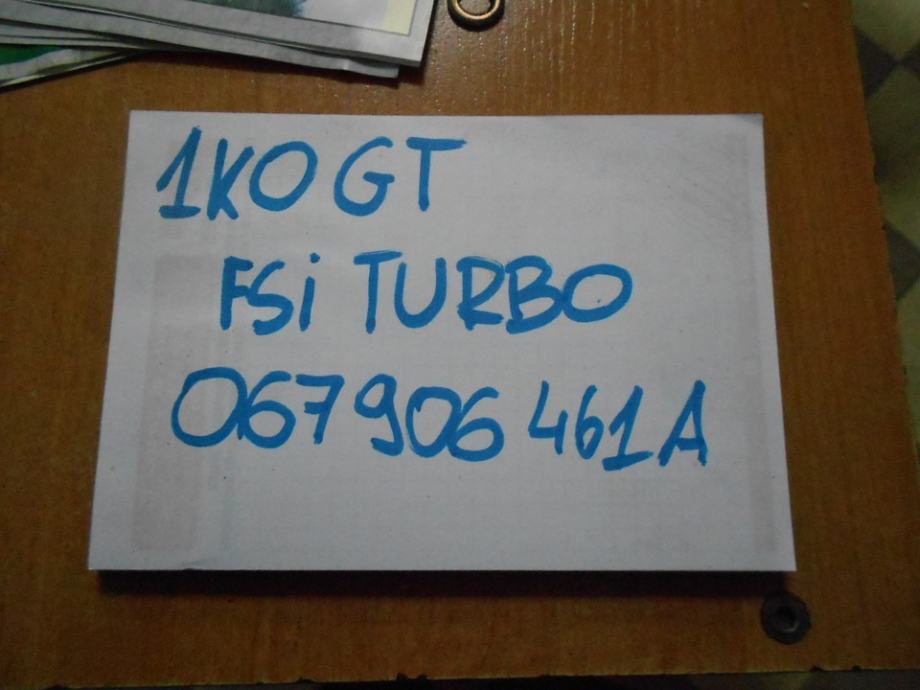 1KO GT
FSi TURBO
067906 461A